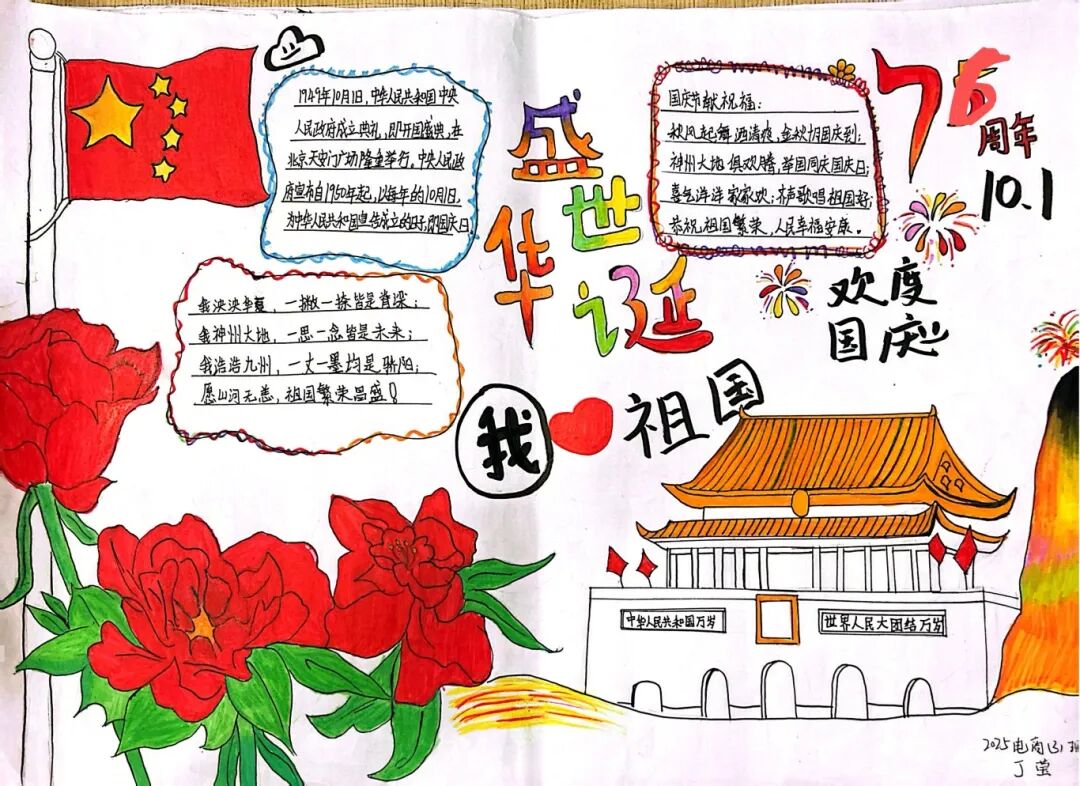 1949年10月1日,中华人民共和国中央
人民政府成立典礼,即开国盛典,在
北京天安门广场隆重举行,中央人民政
府宣布自1950年起,以每年的10月1日,
为中华人民共和国宣告成立的日子,即国庆日.
我泱泱华夏,一撇一捺皆是脊梁;
我神州大地,一思一念皆是未来;
我浩浩九州,一丈一墨均是骄阳;
愿山河无恙,祖国繁荣昌盛!
盛世
华诞
国庆节献祝福:
秋风起舞洒清爽,金秋十月国庆到;
神州大地俱欢腾,举国同庆国庆日;
喜气洋洋家家欢;齐声歌唱祖国好;
恭祝祖国繁荣,人民幸福安康。
76
周年
10.1
欢度
国庆
我 祖国
中华人民共和国万岁
世界人民大团结万岁
2025电商(3)班
丁莹